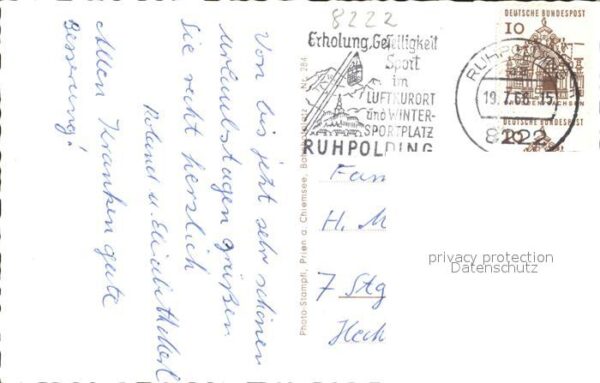 8222
Von bis jetzt sehr schönen
Urlaubstagen grüßen
Sie recht herzlich
Roland u. Elisabeth
Allen Kranken gute
Besserung!
Photo-Stampfl, Prien a. Chiemsee, Nr. 284
Erholung, Geselligkeit
Sport
im
LUFTKURORT
und WINTER-
SPORTPLATZ
RUHPOLDING
19.7.68-15
8222
DEUTSCHE BUNDESPOST
10
DEUTSCHE BUNDESPOST
Fam
H. M
7 Stg
Heck
privacy protection
Datenschutz